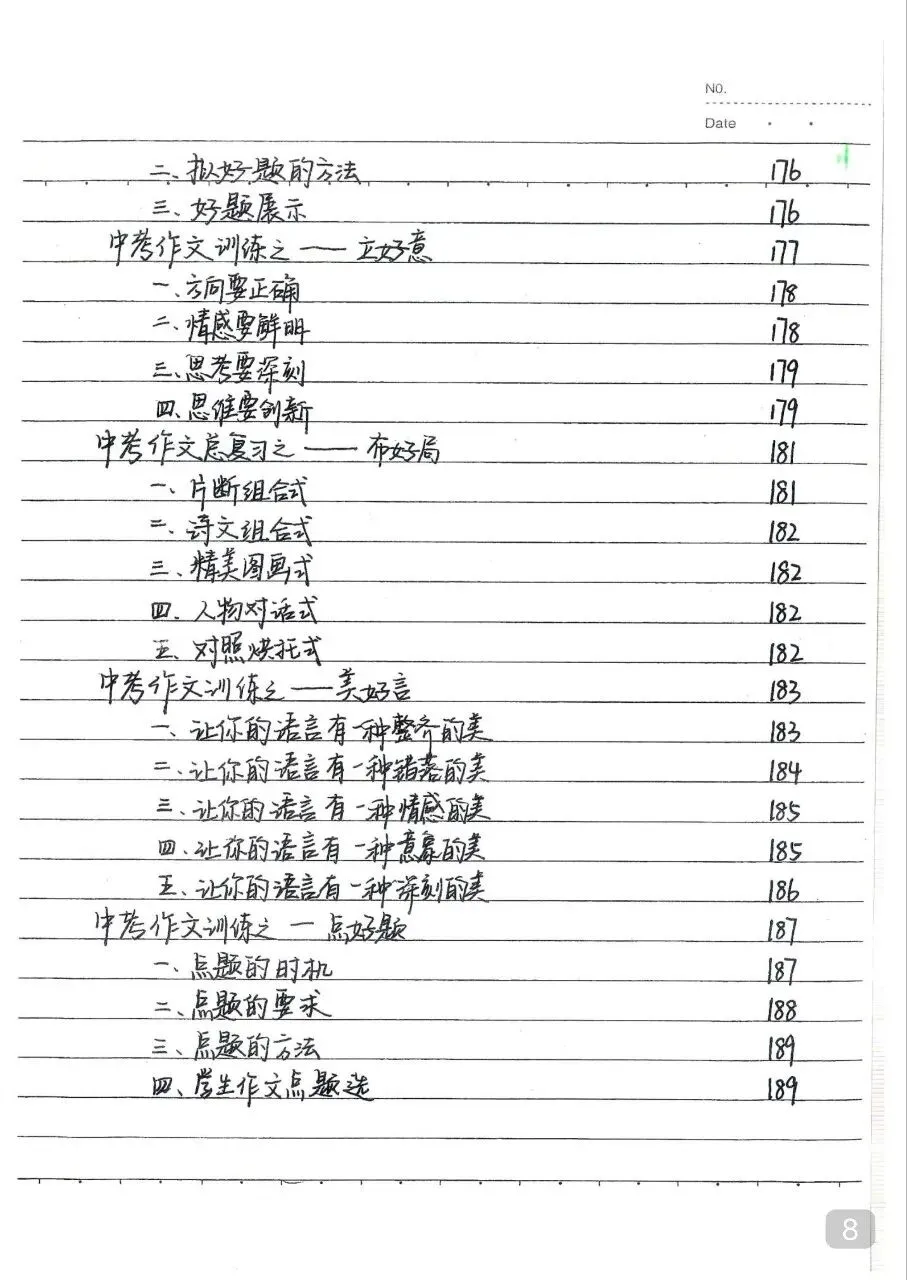 NO.
Date
二、拟好题的方法 176
三、好题展示 176
中考作文训练之——立好意 177
一、方向要正确 178
二、情感要鲜明 178
三、思考要深刻 179
四、思维要创新 179
中考作文总复习之——布好局 181
一、片断组合式 181
二、诗文组合式 182
三、精美图画式 182
四、人物对话式 182
五、对照烘托式 182
中考作文训练之——美好言 183
一、让你的语言有一种整齐的美 183
二、让你的语言有一种错落的美 184
三、让你的语言有一种情感的美 185
四、让你的语言有一种意象的美 185
五、让你的语言有一种深刻的美 186
中考作文训练之—点好题 187
一、点题的时机 187
二、点题的要求 188
三、点题的方法 189
四、学生作文点题选 189
8